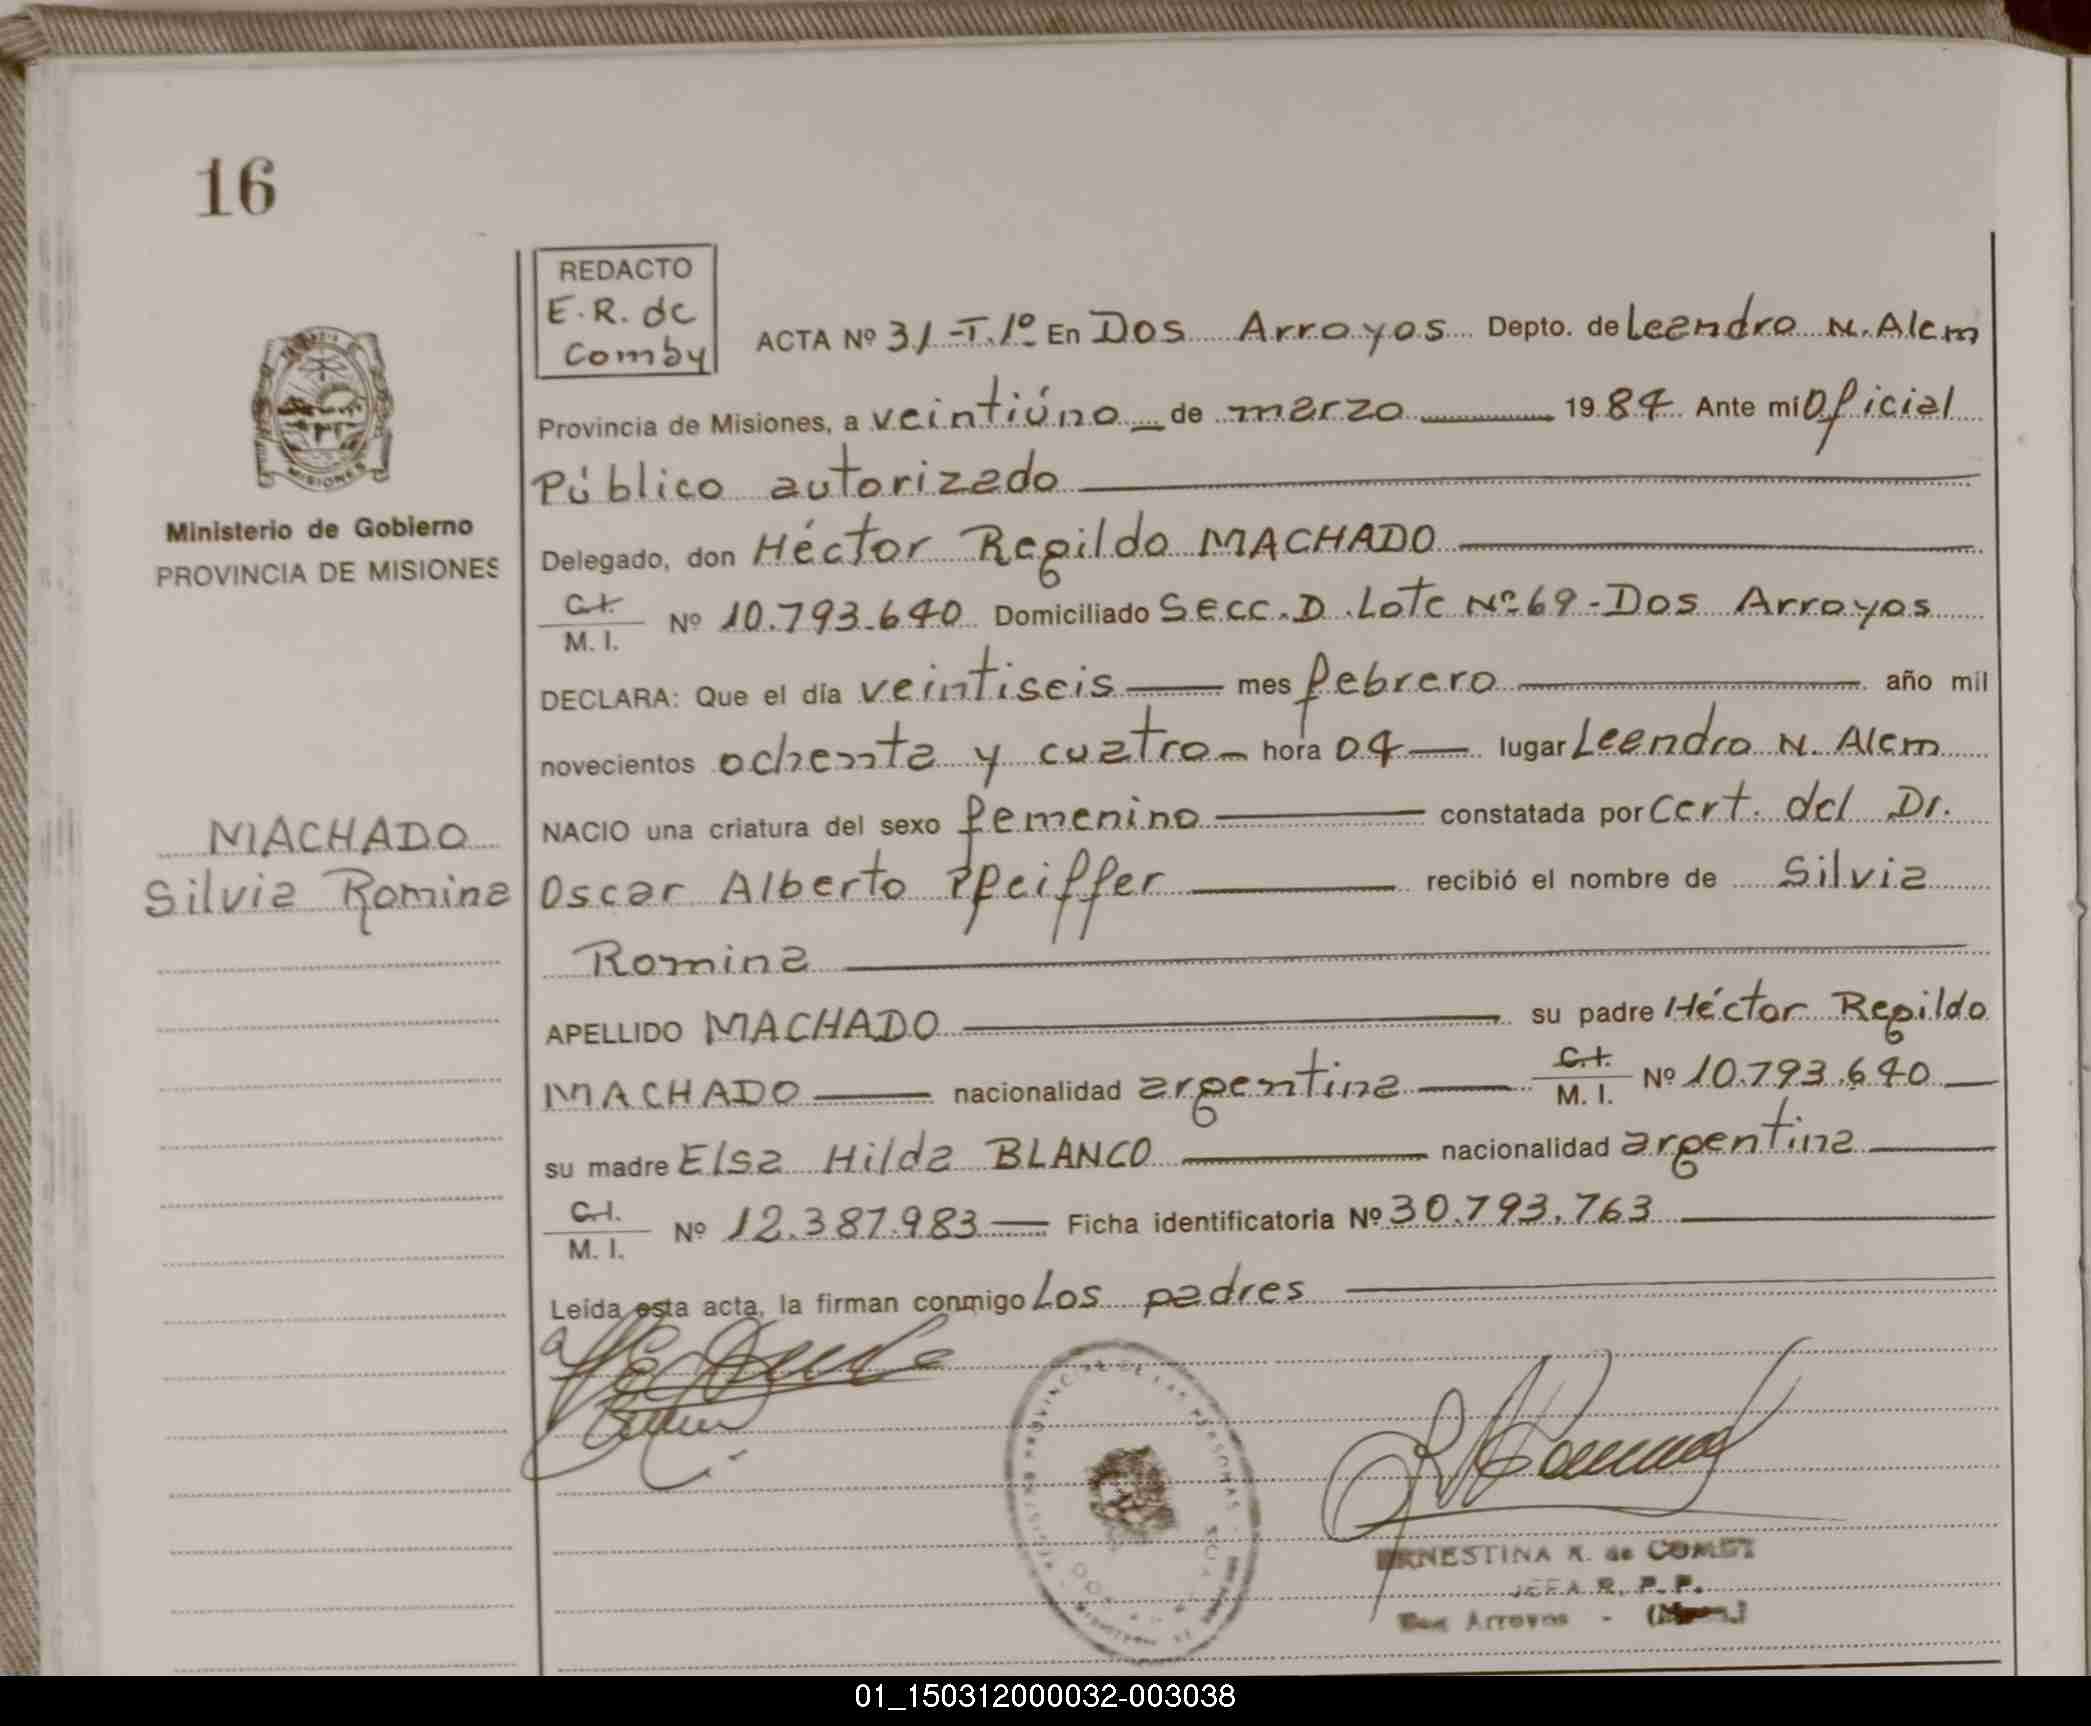 16
REDACTO
E.R. de
Comby
ACTA Nº 31-T.1º En Dos Arroyos Depto. de Leandro N. Alem
Provincia de Misiones, a veintiúno de marzo 1984 Ante mi Oficial
Público autorizado
Delegado, don Héctor Regildo MACHADO
MISIONES
Ministerio de Gobierno
PROVINCIA DE MISIONES
C.I.
M. I. Nº 10.793.640 Domiciliado Secc. D. Lote Nº 69 - Dos Arroyos
DECLARA: Que el día veintiseis mes febrero año mil
novecientos ochenta y cuatro hora 04 lugar Leandro N. Alem
NACIO una criatura del sexo femenino constatada por Cert. del Dr.
MACHADO
Silvia Romina
Oscar Alberto Pfeiffer recibió el nombre de Silvia
Romina
APELLIDO MACHADO su padre Héctor Regildo
MACHADO nacionalidad argentina C.I. M. I. Nº 10.793.640
su madre Elsa Hilda BLANCO nacionalidad argentina
C.I.
M. I. Nº 12.387.983 Ficha identificatoria Nº 30.793.763
Leída esta acta, la firman conmigo Los padres
ERNESTINA R. de COMBY
JEFA R. P. P.
Dos Arroyos - (Mnes.)
01_150312000032-003038